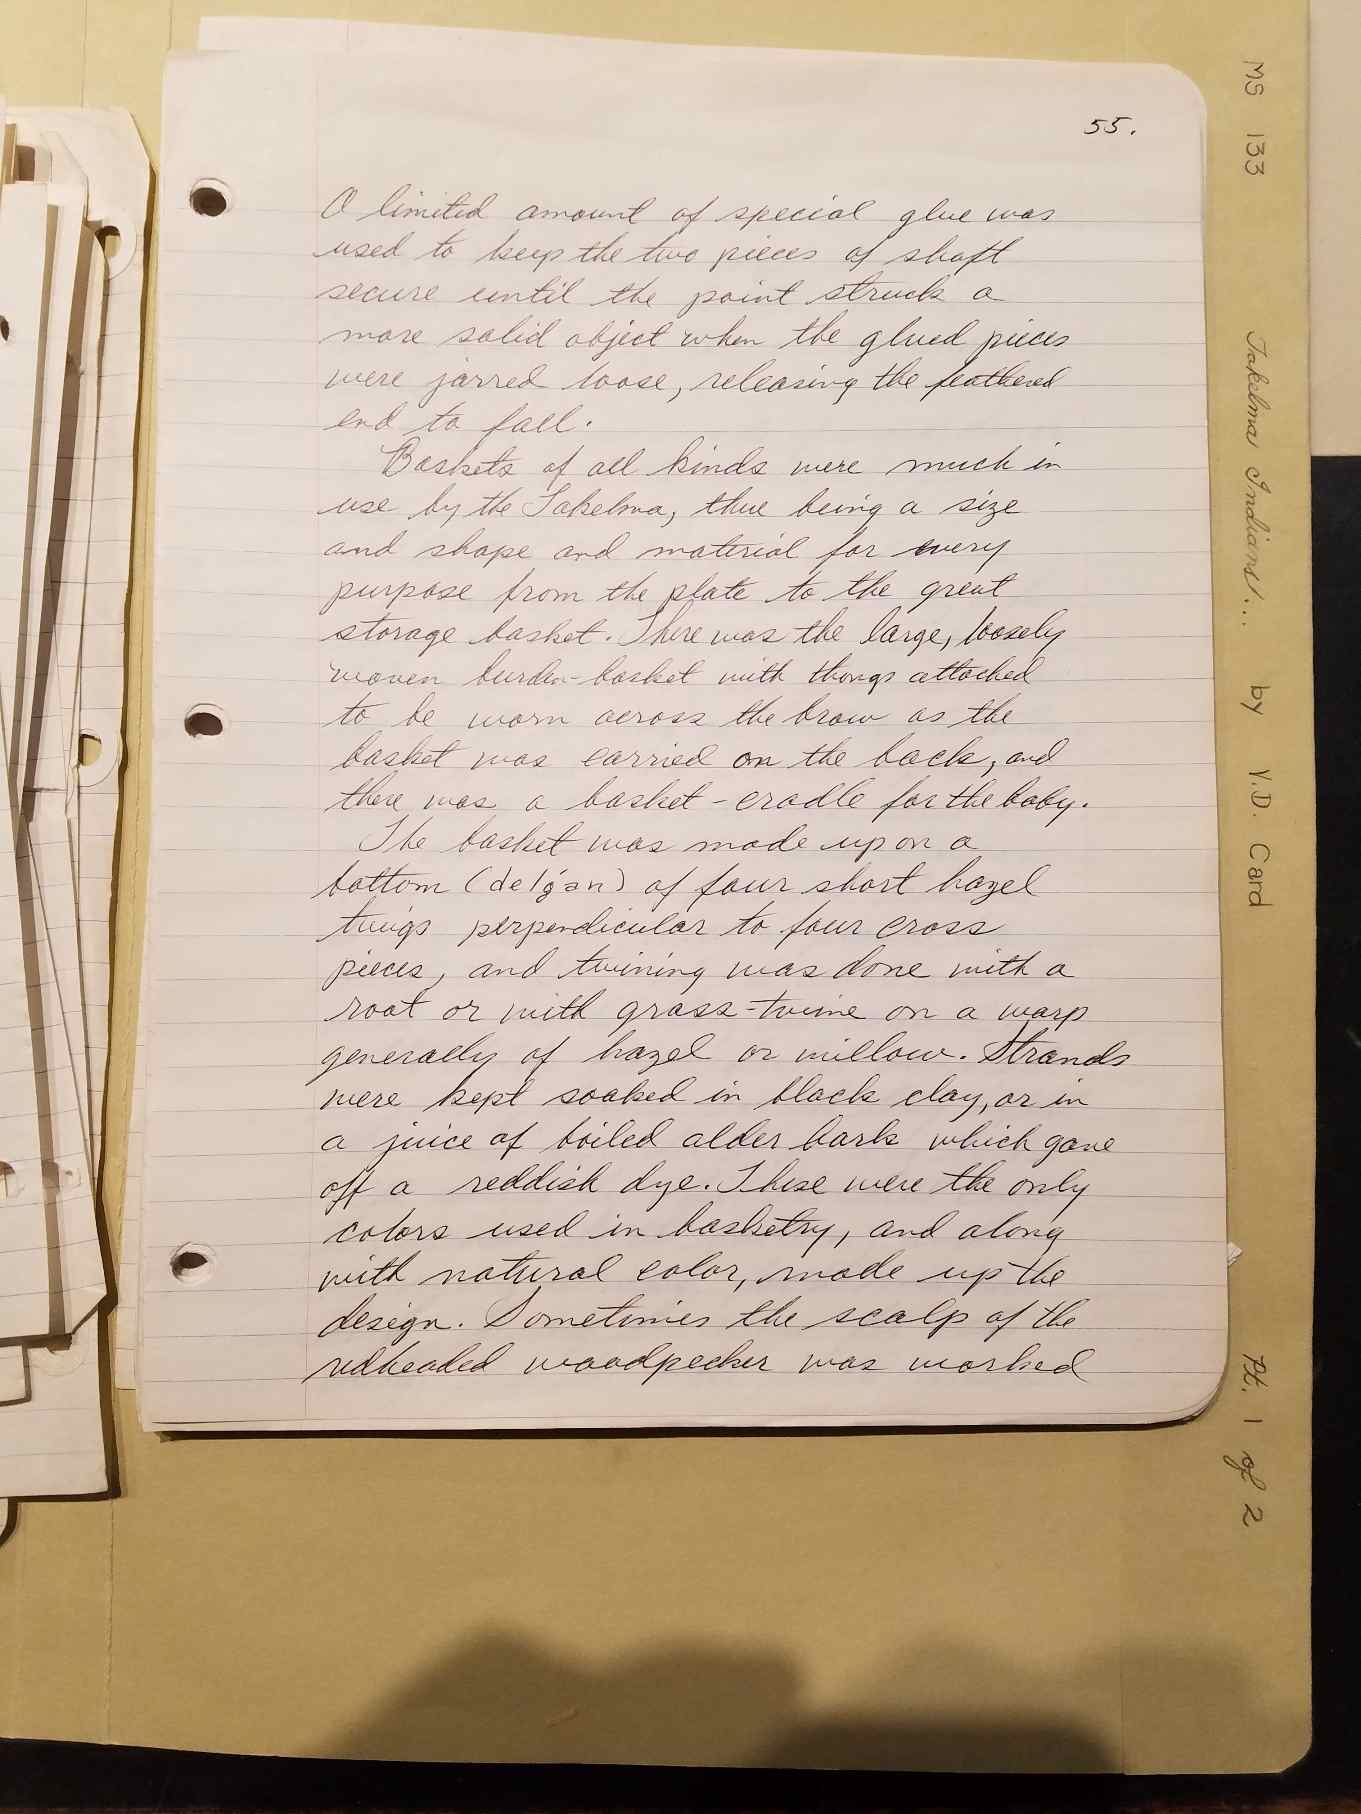 55.
A limited amount of special glue was
used to keep the two pieces of shaft
secure until the point struck a
more solid object when the glued pieces
were jarred loose, releasing the feathered
end to fall.
Baskets of all kinds were much in
use by the Takelma, there being a size
and shape and material for every
purpose from the plate to the great
storage basket. There was the large, loosely
woven burden-basket with thongs attached
to be worn across the brow as the
basket was carried on the back, and
there was a basket-cradle for the baby.
The basket was made upon a
bottom (delgan) of four short hazel
twigs perpendicular to four cross
pieces, and twining was done with a
root or with grass-twine on a warp
generally of hazel or willow. Strands
were kept soaked in black clay, or in
a juice of boiled alder bark which gave
off a reddish dye. These were the only
colors used in basketry, and along
with natural color, made up the
design. Sometimes the scalp of the
redheaded woodpecker was worked
MS 133 Takelma Indians... by V.D. Card Pt. 1 of 2